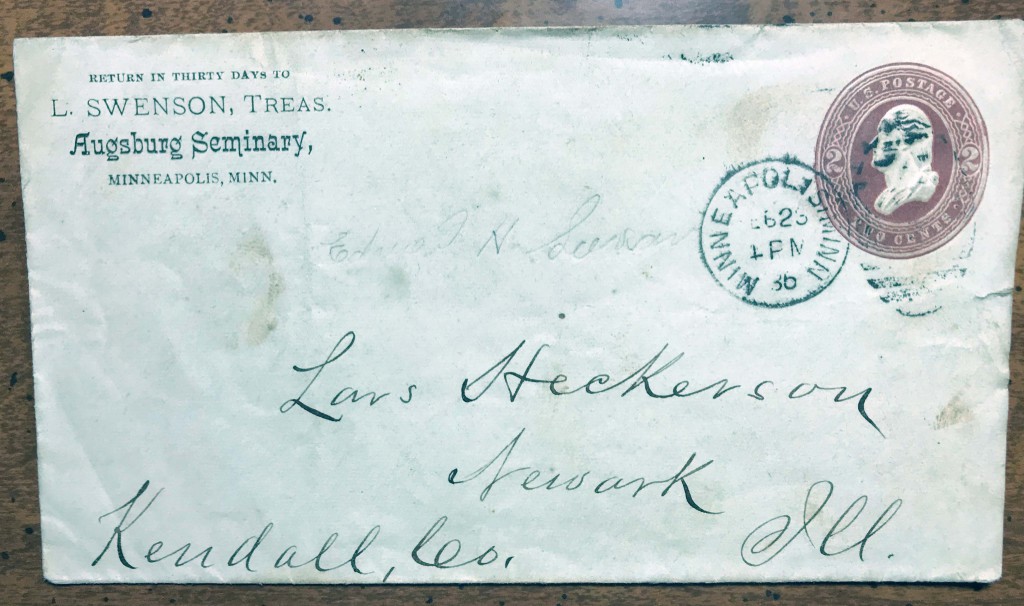 RETURN IN THIRTY DAYS TO
L. SWENSON, TREAS.
Augsburg Seminary,
MINNEAPOLIS, MINN.
U.S. POSTAGE
2 2
TWO CENTS
MINNEAPOLIS MINN
PM
86
Lars Heckerson
Newark
Kendall, Co. Ill.